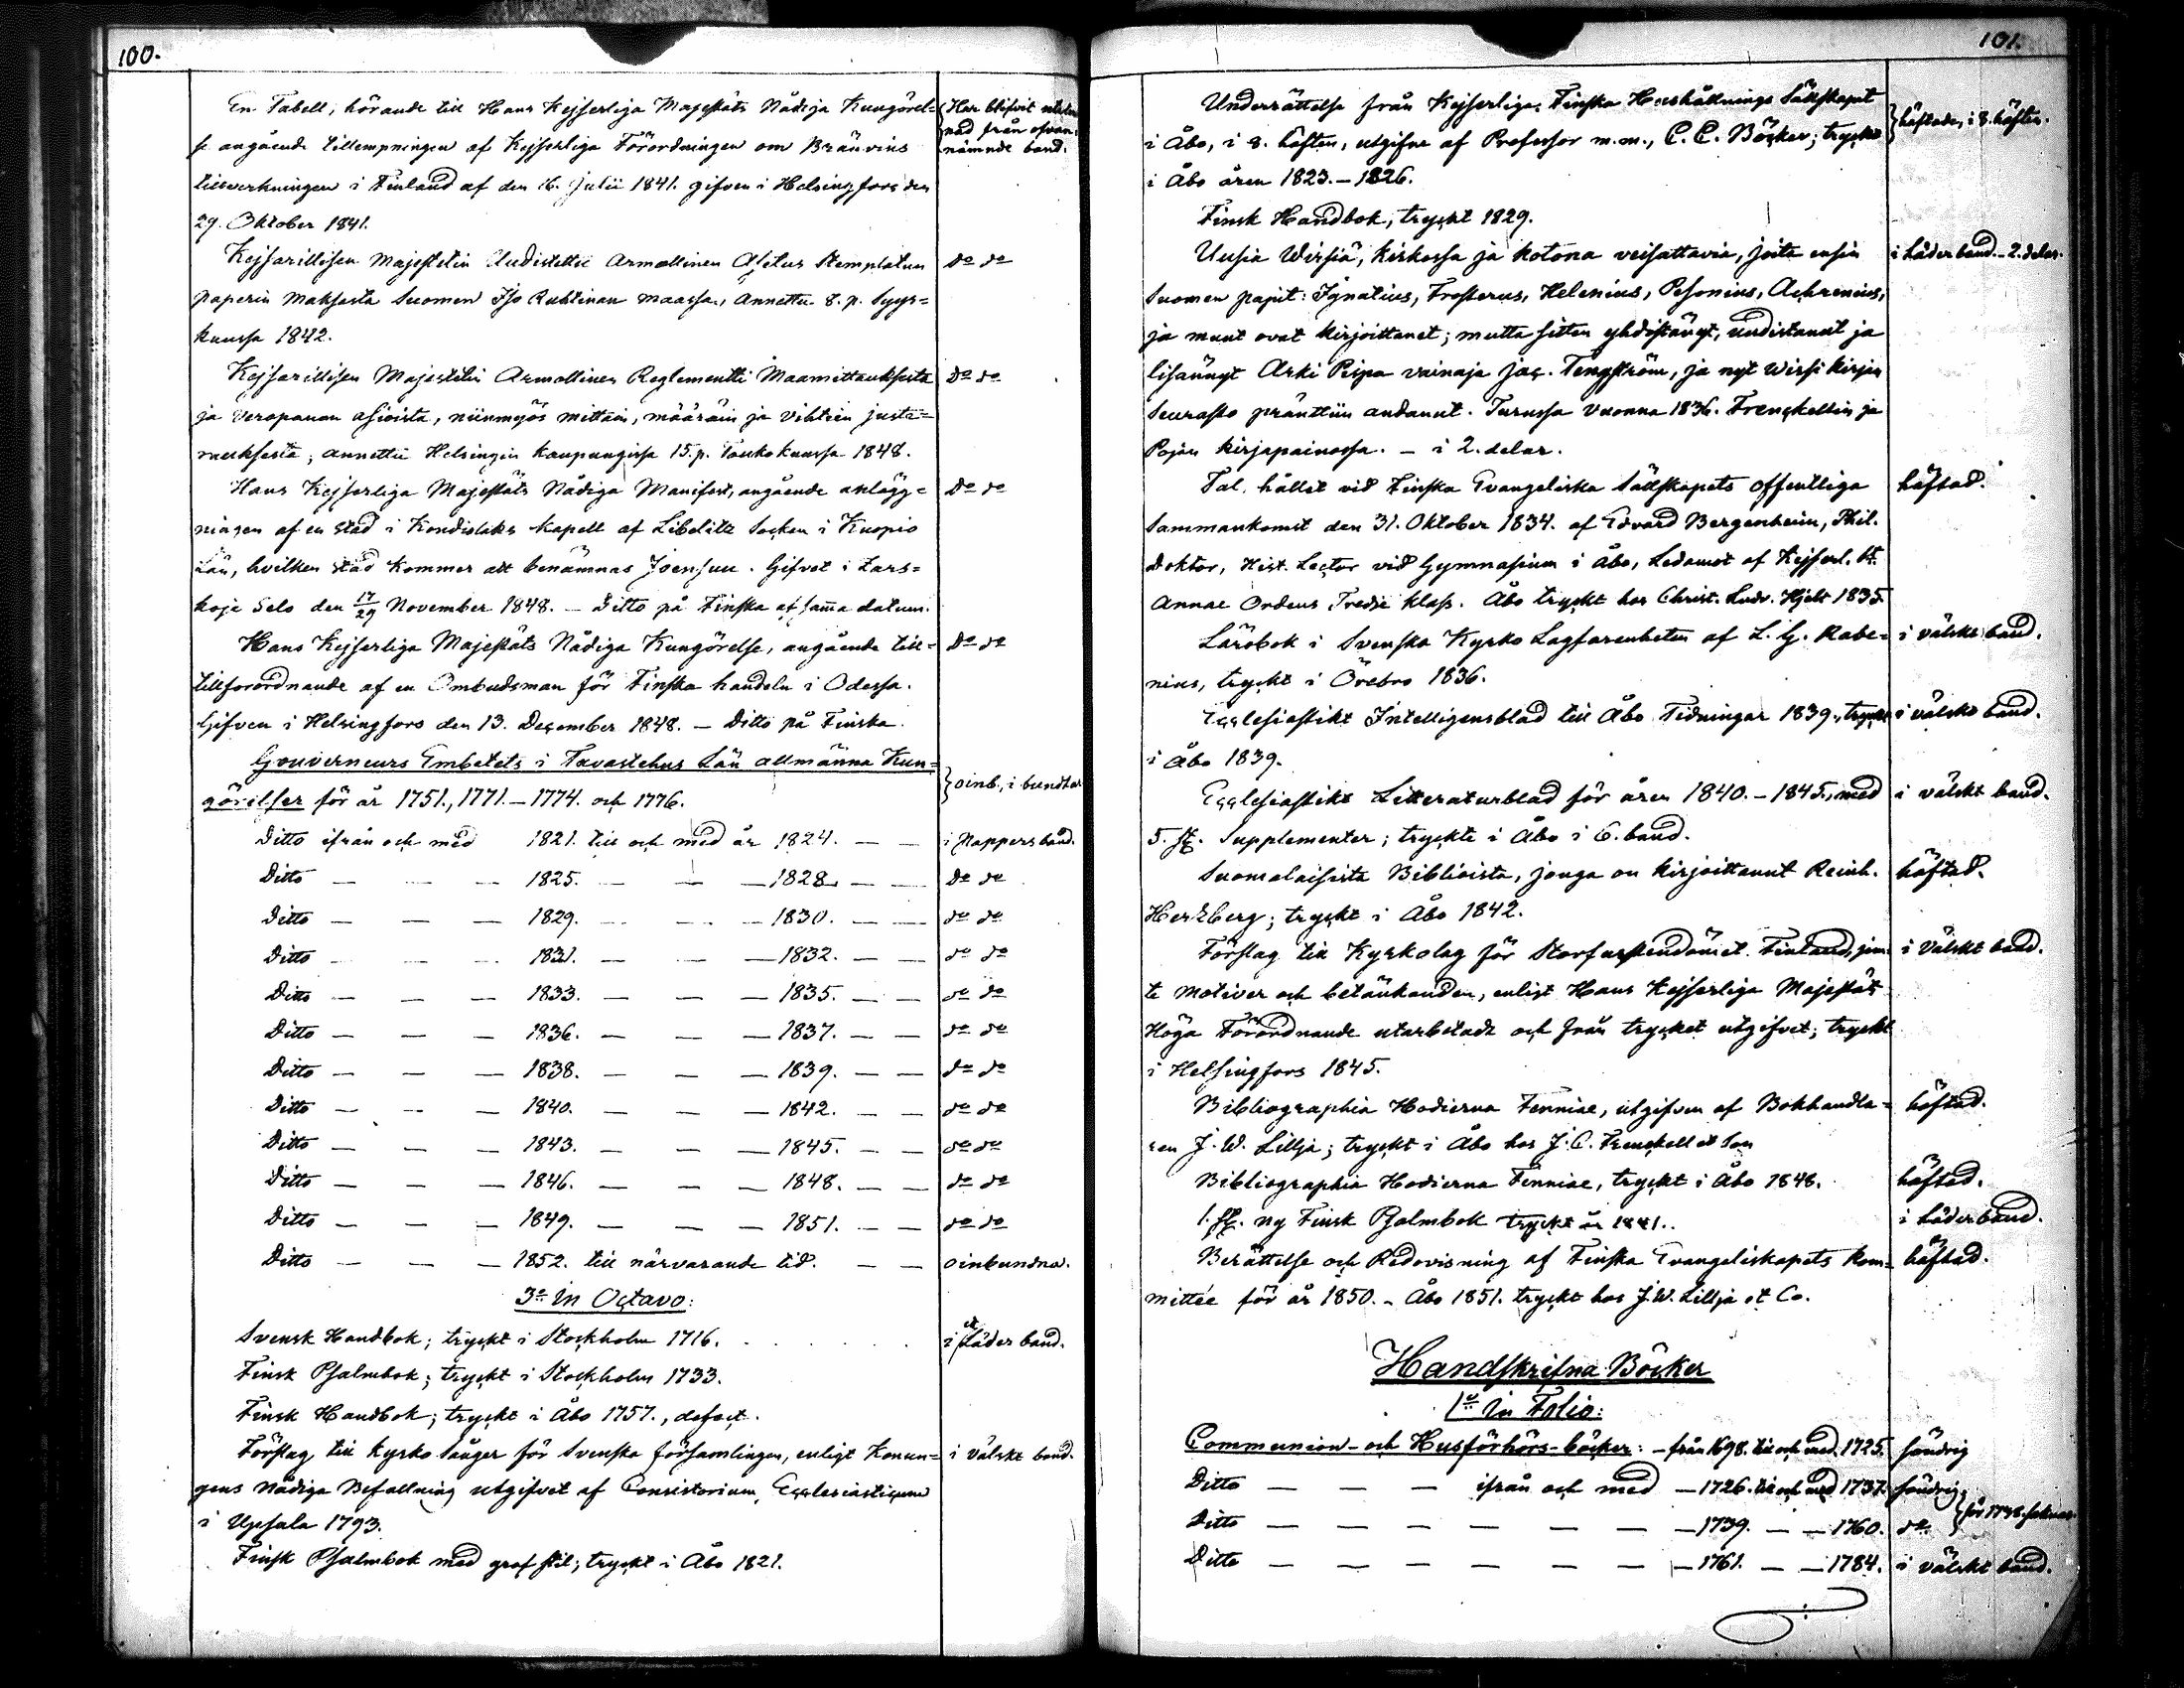 100.
En Tabell, hörande till Hans Kejserliga Majestäts Nådiga Kungörel=
se angående tillempningen af Kejserliga Förordningen om Bränvins
tillverkningen i Finland af den 16. Julii 1841. gifven i Helsingfors den
29. Oktober 1841.
Har blifvit
nad från ofvan=
nämnde band.
Kejsarillisen Majestetin Uudistettu Armollinen Asetus Stemplatun
paperin maksosta Suomen Iso Ruhtinan maassa, annettu 8. p. Syys=
kuussa 1842.
do do
Kejsarillisen Majestetin Armollinen Reglementti Maamittauksesta
ja Veropanon asioista, niinmyös mittain, määräin ja vihtein juste=
rauksesta; annettu Helsingin kaupungissa 15. p. Toukokuussa 1848.
do do
Hans Kejserliga Majestäts Nådiga Manifest, angående anlägg=
ningen af en stad i Kondiolaks Kapell af Libelitz Socken i Kuopio
Län, hvilken stad kommer att benämnas Joensuu. Gifvet i Zars=
koje Selo den 17/29 November 1848. – Ditto på Finska af samma datum.
do do
Hans Kejserliga Majestäts Nådiga Kungörelse, angående till=
tillforordnande af en Ombudsman för Finska handeln i Odessa.
Gifven i Helsingfors den 13. December 1848. – Ditto på Finska.
do do
Gouverneurs Embetets i Tavastehus Län allmänna Kun=
görelser för år 1751., 1771. – 1774. och 1776.
oinb., i bundtar
Ditto ifrån och med 1821. till och med år 1824. — — i Pappersband.
Ditto — — — 1825. — — — 1828. — — do do
Ditto — — — 1829. — — — 1830. — — do do
Ditto — — — 1831. — — — 1832. — — do do
Ditto — — — 1833. — — — 1835. — — do do
Ditto — — — 1836. — — — 1837. — — do do
Ditto — — — 1838. — — — 1839. — — do do
Ditto — — — 1840. — — — 1842. — — do do
Ditto — — — 1843. — — — 1845. — — do do
Ditto — — — 1846. — — — 1848. — — do do
Ditto — — — 1849. — — — 1851. — — do do
Ditto — — — 1852. till närvarande tid. — — oinbundna.
3o In Octavo:
Svensk Handbok; tryckt i Stockholm 1716. i ett Läder band.
Finsk Psalmbok; tryckt i Stockholm 1733.
Finsk Handbok; tryckt i Åbo 1757., defect.
Förslag till Kyrko Sånger för Svenska församlingen, enligt Konun=
gens Nådiga Befallning utgifvet af Consistorium Ecclesiasticum
i Upsala 1793.
i välskt band.
Finsk Psalmbok med grof stil; tryckt i Åbo 1821.
101.
Underrättelse från Kejserliga Finska Hushållnings Sällskapet
i Åbo, i 8. häften, utgifne af Professor m.m., C. C. Böcker; tryckt
i Åbo åren 1823. – 1826.
häftade, i 8. häften.
Finsk Handbok, tryckt 1829.
Uusia Wirsiä, kirkossa ja kotona veisattavia, joita ensin
Suomen papit: Ignatius, Frosterus, Helenius, Pesonius, Achrenius,
ja muut ovat kirjoittanet; mutta sitten yhdistänyt, uudistanut ja
lisännyt Arki Pispa vainaja Jac. Tengström, ja nyt wirsi kirjan
Seurasto pränttiin andanut. Turussa vuonna 1836. Frenckellin ja
Pojan kirjapainossa. – i 2. delar.
i Läderband. – 2. delar.
Tal, hållet vid Finska Evangeliska Sällskapets offentliga
Sammankomst den 31. Oktober 1834. af Edvard Bergenheim, Phil.
Doktor, Hist. Lector vid Gymnasium i Åbo, Ledamot af Kejserl. St.
Annae Ordens Tredje klass. Åbo tryckt hos Christ. Ludv. Hjelt 1835.
häftad.
Lärobok i Svenska Kyrko Lagfarenheten af L. G. Rabe=
nius, tryckt i Örebro 1836.
i välskt band.
Ecclesiastikt Intelligensblad till Åbo Tidningar 1839., tryckt
i Åbo 1839.
i välskt band.
Ecclesiastikt Litteraturblad för åren 1840. – 1845., med
5. st. Supplementer; tryckte i Åbo i 6. band.
i välskt band.
Suomalaisista Biblioista, jonga on kirjoittanut Reinh.
Hertzberg; tryckt i Åbo 1842.
häftad.
Förslag till Kyrkolag för Storfurstendömet Finland, jem=
te motiver och betänkanden, enligt Hans Kejserliga Majestäts
Höga Förordnande utarbetadt och från trycket utgifvet; tryckt
i Helsingfors 1845.
i Välskt band.
Bibliographia Hodierna Fenniae, utgifven af Bokhandla=
ren J. W. Lillja; tryckt i Åbo hos J. C. Frenckell et Son
häftad.
Bibliographia Hodierna Fenniae, tryckt i Åbo 1848. häftad.
1. st. ny Finsk Psalmbok tryckt år 1841. i Läderband.
Berättelse och Redovisning af Finska Evangeliskapets kom=
mittée för år 1850. – Åbo 1851. tryckt hos J. W. Lillja et Co.
häftad.
Handskrifna Böcker
1o In Folio:
Communion- och Husförhörs-böcker: – från 1698. till och med 1725. söndrig
Ditto — — — ifrån och med — 1726. till och med 1737. söndrig
för 1738. saknas.
Ditto — — — — — — — 1739. — — 1760. do
Ditto — — — — — — — 1761. — — 1784. i välskt band.